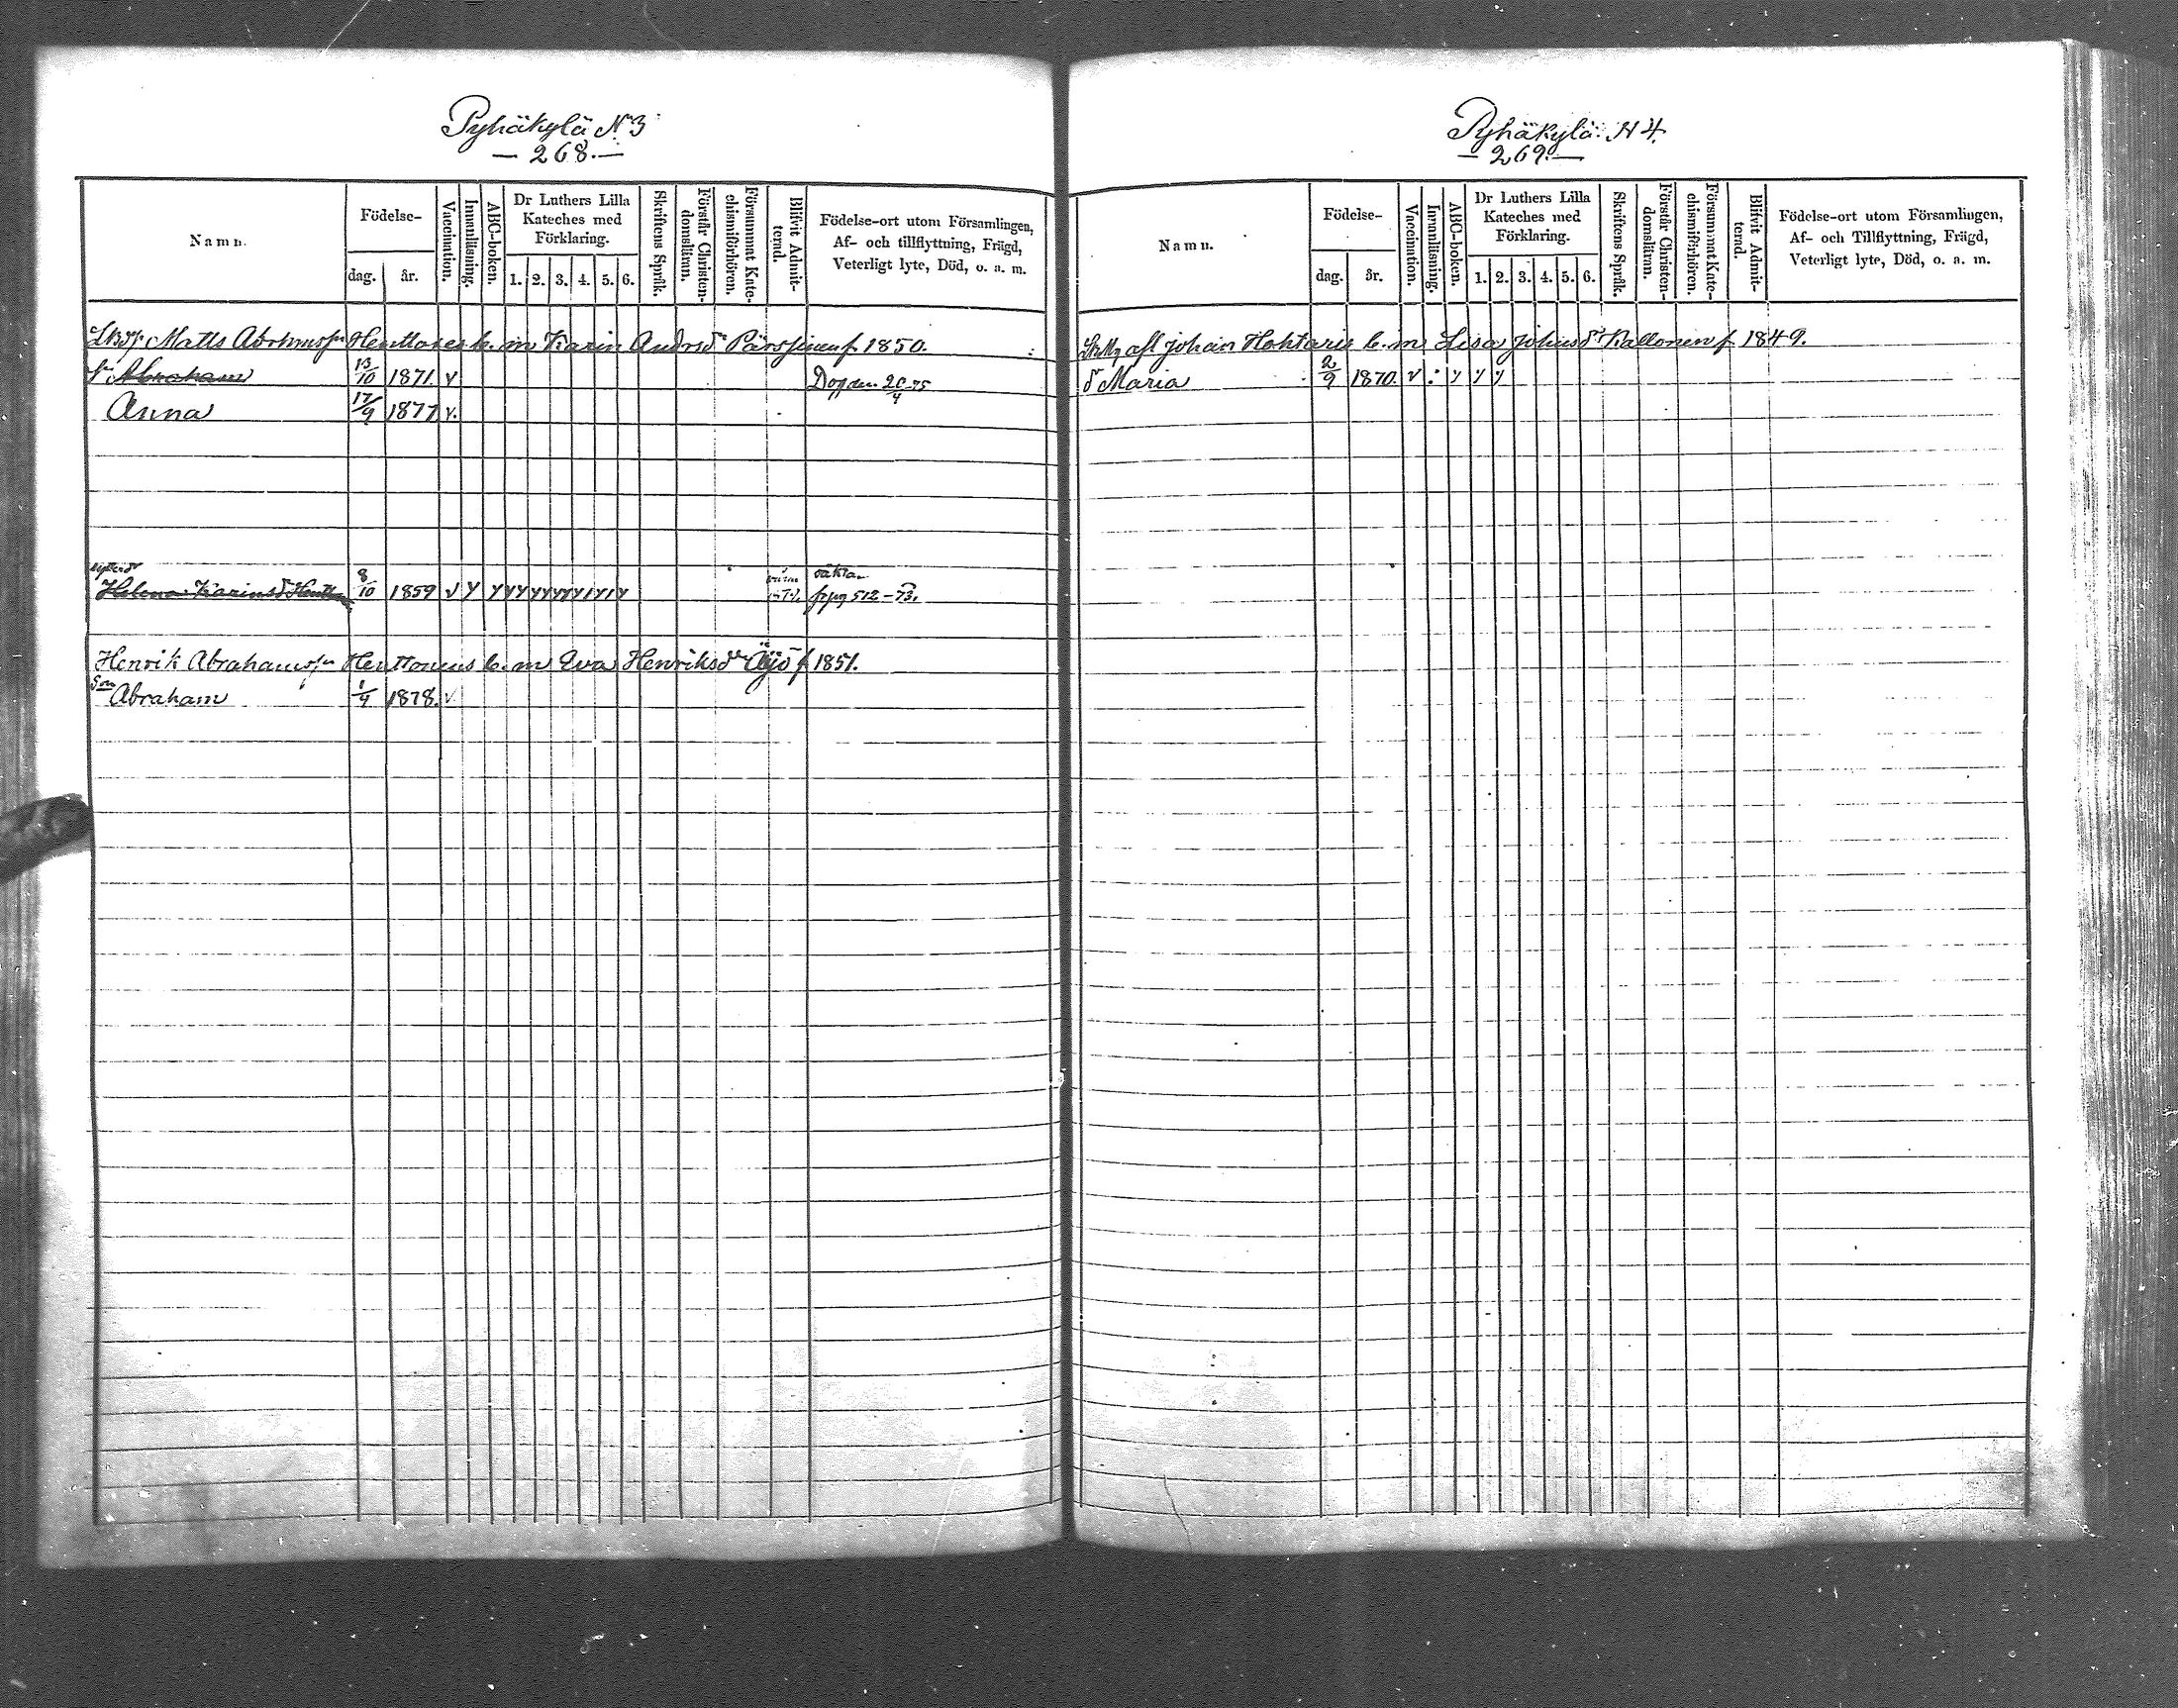 Pyhäkylä N 3
— 268. —
Namn.
Födelse-
dag.
år.
Vaccination.
Innanläsning.
ABC-boken.
Dr Luthers Lilla
Kateches med
Förklaring.
1. 2. 3. 4. 5. 6.
Skriftens Språk.
Förstår Christen-
domsläran.
Försummat Kate-
chismiförhören.
Blifvit Admit-
terad.
Födelse-ort utom Församlingen,
Af- och tillflyttning, Frägd,
Veterligt lyte, Död, o. a. m.
Matts Abrhmssn Henttonen b. m Karin Andrsdr Pärssinen f 1850.
Sn Abraham 13/10 1871. v Dog den 20/4 75
Anna 17/9 1877 v.
Helena Karinsdr Hentton 8/10 1859 v y y y y y y y y y pag 512 – 73.
Henrik Abrahamssn Henttonens b. m Eva Henriksdr Äijö f 1851.
Son Abraham 1/4 1878. v
Pyhäkylä N 4.
— 269. —
Namn.
Födelse-
dag.
år.
Vaccination.
Innanläsning.
ABC-boken.
Dr Luthers Lilla
Kateches med
Förklaring.
1. 2. 3. 4. 5. 6.
Skriftens Språk.
Förstår Christen-
domsläran.
Försummat Kate-
chismiförhören.
Blifvit Admit-
terad.
Födelse-ort utom Församlingen,
Af- och Tillflyttning, Frägd,
Veterligt lyte, Död, o. a. m.
afl Johan Hohtaris b. m Lisa Johnsdr Kallonen f 1849.
dr Maria 2/9 1870. v : y y y